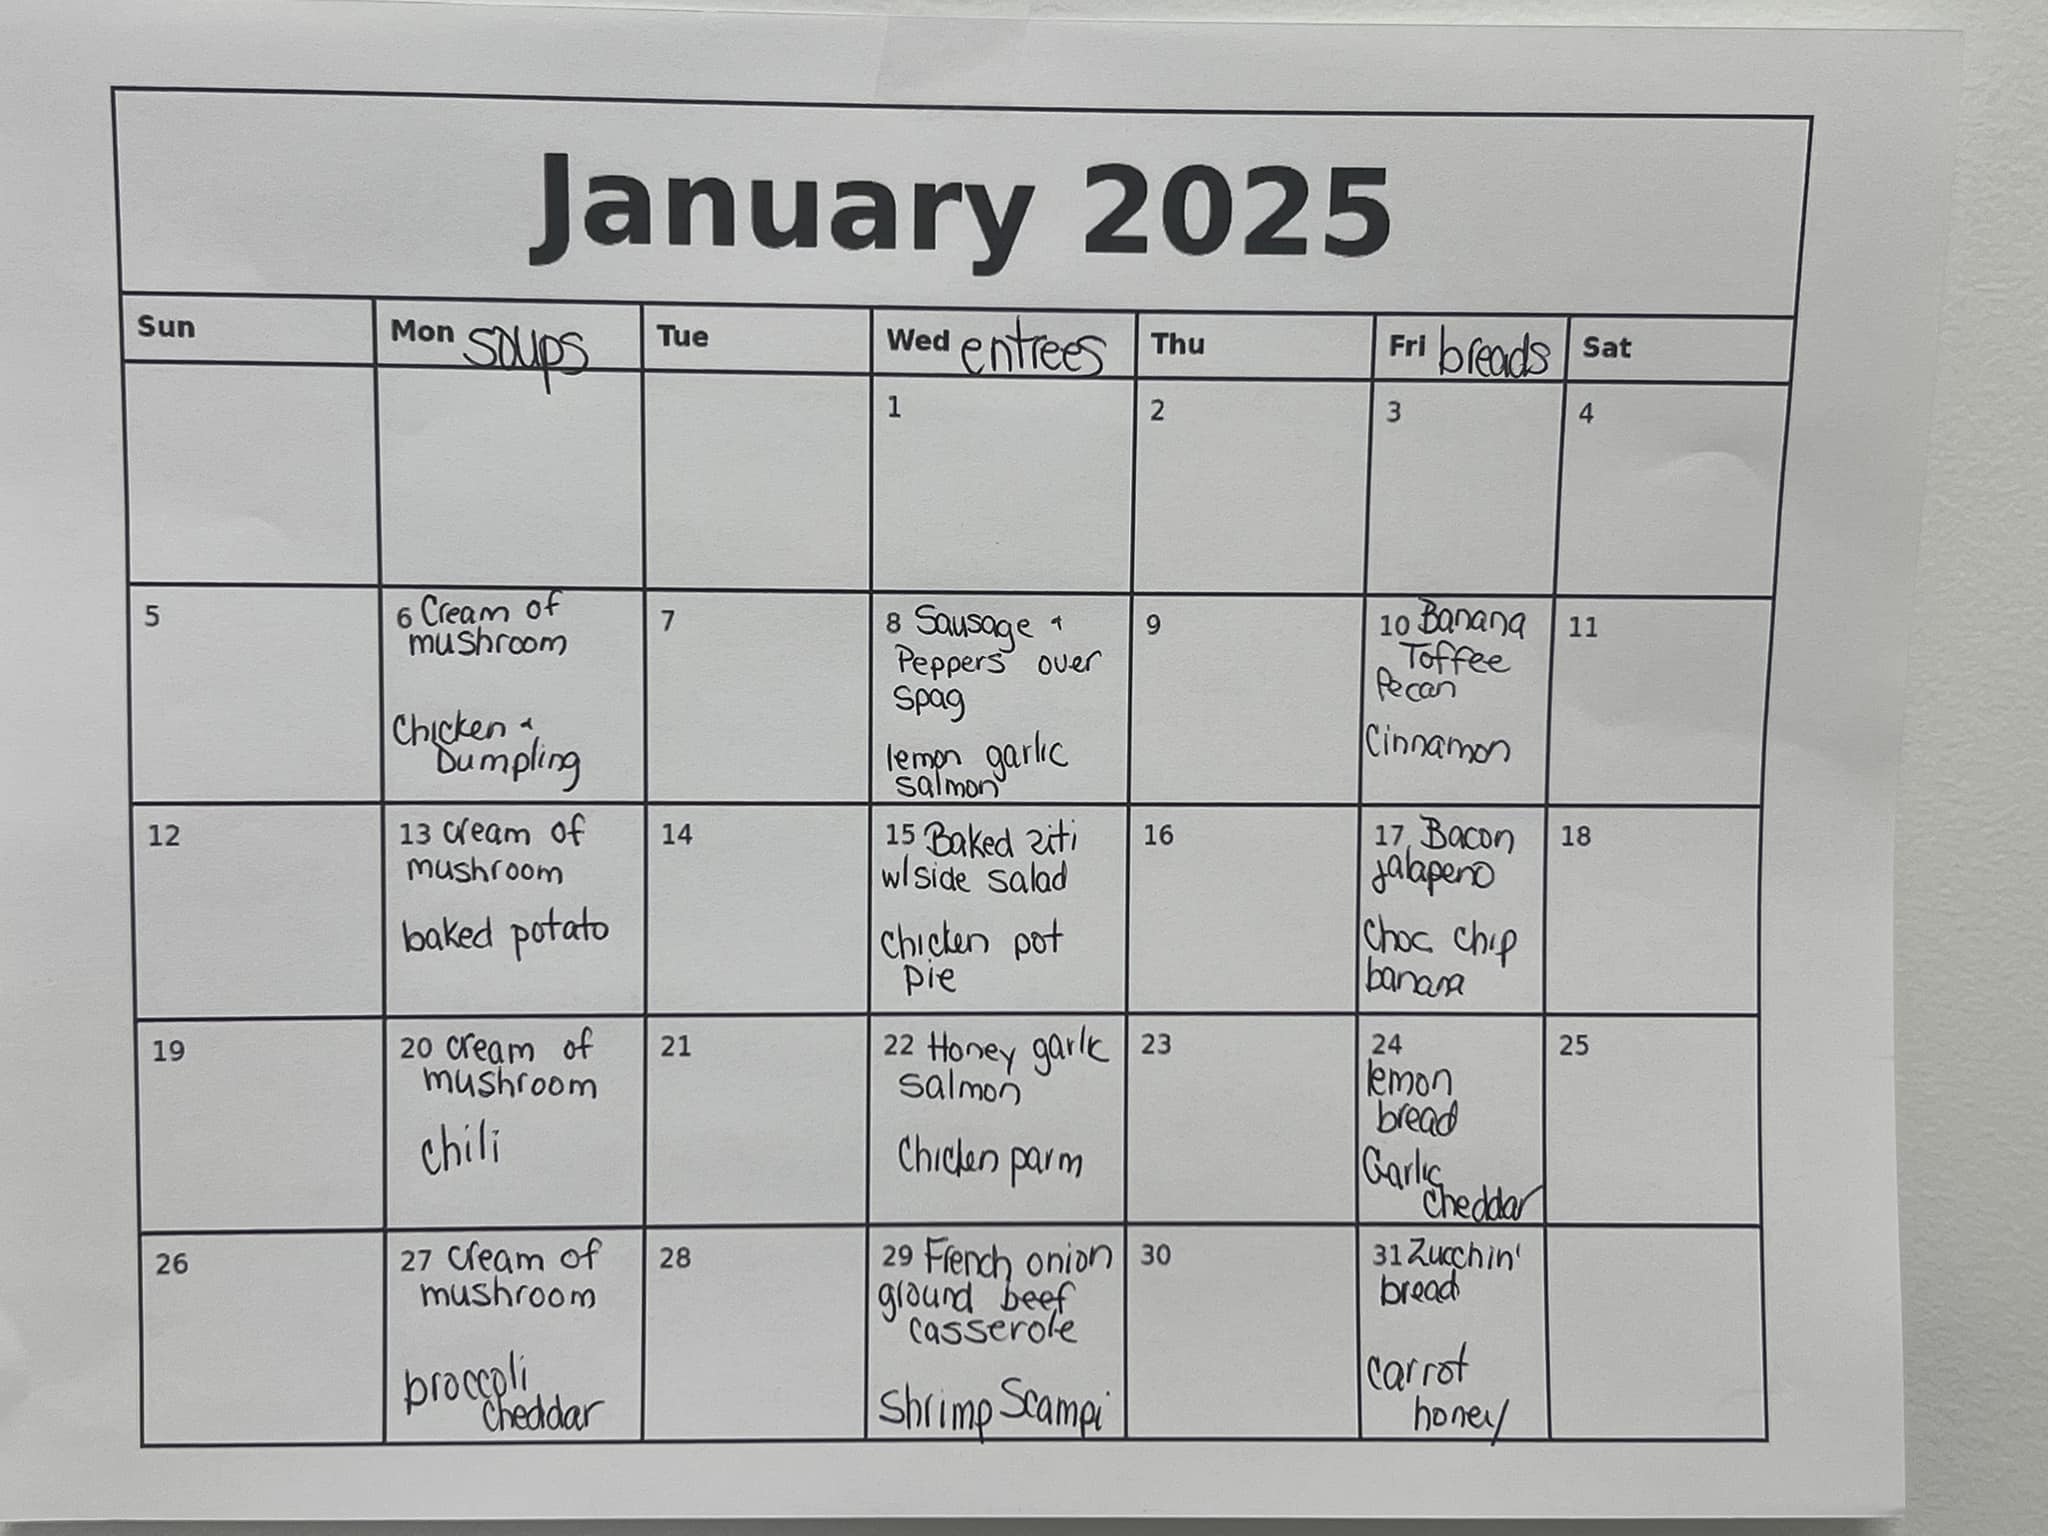 January 2025
Sun Mon soups Tue Wed entrees Thu Fri breads Sat
1 2 3 4
5
6 Cream of
mushroom
Chicken +
Dumpling
7
8 Sausage +
Peppers over
spag
lemon garlic
salmon
9
10 Banana
Toffee
Pecan
Cinnamon
11
12
13 cream of
mushroom
baked potato
14
15 Baked ziti
w/side salad
Chicken pot
pie
16
17 Bacon
jalapeno
Choc chip
banana
18
19
20 cream of
mushroom
chili
21
22 Honey garlc
salmon
Chicken parm
23
24
lemon
bread
Garlic
cheddar
25
26
27 cream of
mushroom
broccoli
cheddar
28
29 French onion
ground beef
casserole
Shrimp Scampi
30
31 Zucchin'
bread
carrot
honey